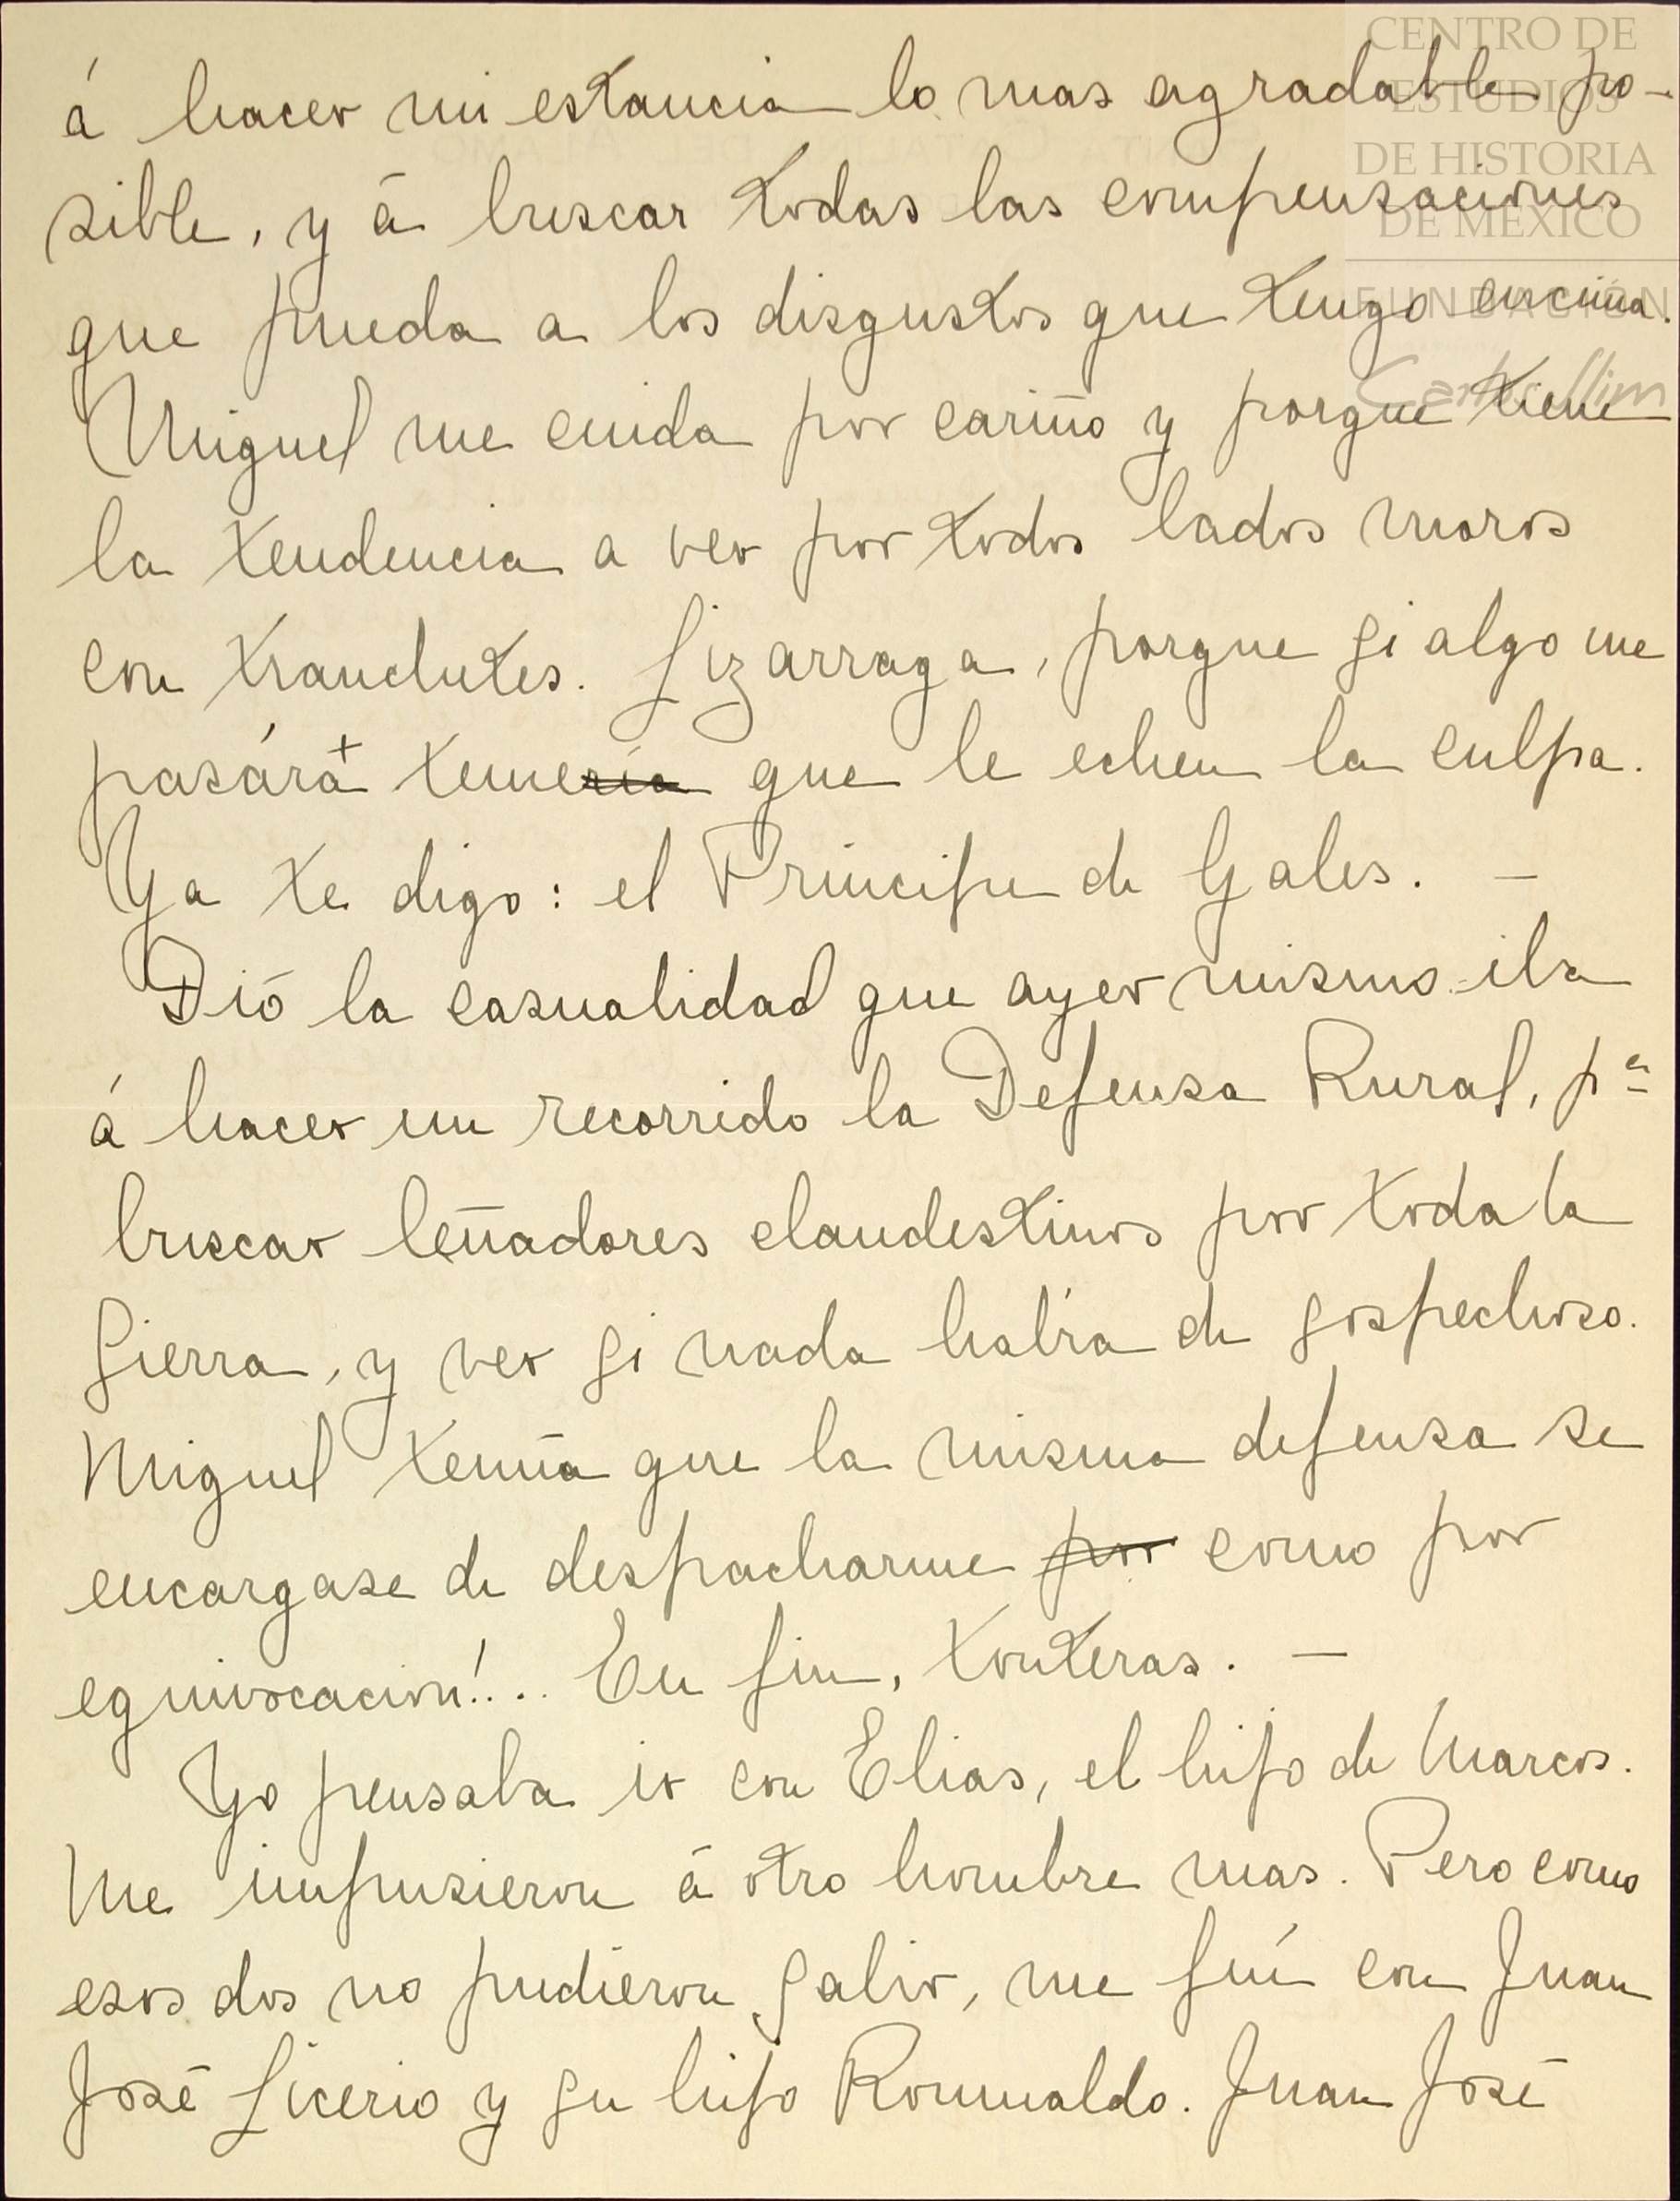 á hacer mi estancia lo mas agradable po-
sible, y á buscar todas las compensaciones
que pueda a los disgustos que tengo encima.
Miguel me cuida por cariño y porque tiene
la tendencia a ver por todos lados moros
con tranchetes. Lizarraga, porque si algo me
pasára + temería que le echen la culpa.
Ya te digo: el Príncipe de Gales. —
Dió la casualidad que ayer mismo iba
á hacer un recorrido la Defensa Rural, pª
buscar leñadores clandestinos por toda la
Sierra, y ver si nada había de sospechoso.
Miguel temía que la misma defensa se
encargase de despacharme por como por
equivocacion!... En fin, tonteras. —
Yo pensaba ir con Elias, el hijo de Marcos.
Me impusieron á otro hombre mas. Pero como
esos dos no pudieron salir, me fuí con Juan
José Licerio y su hijo Romualdo. Juan José
CENTRO DE
ESTUDIOS
DE HISTORIA
DE MÉXICO
FUNDACIÓN
Carlos Slim